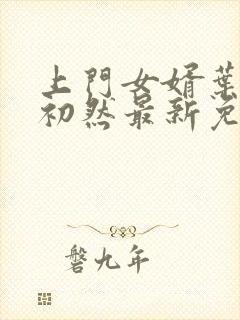 上門女婿葉
初然最新免
磐九年